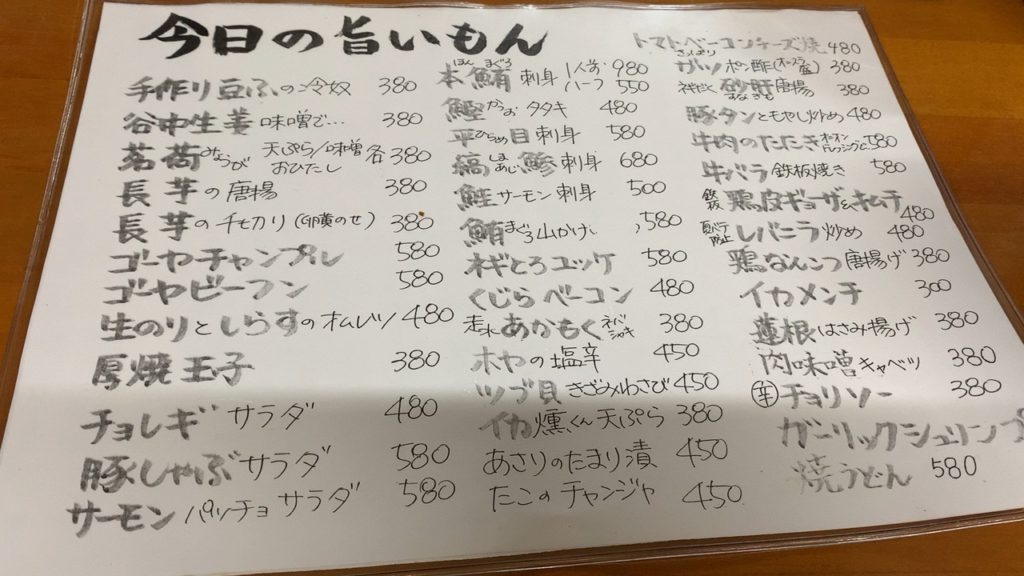 今日の旨いもん
手作り豆ふの冷奴 380
谷中生姜 味噌で… 380
茗荷 みょうが 天ぷら/味噌 おひたし 各380
長芋の唐揚 380
長芋の千切り(卵黄のせ) 380
ゴーヤチャンプル 580
ゴーヤビーフン 580
生のりとしらすのオムレツ 480
厚焼玉子 380
チョレギサラダ 480
豚しゃぶサラダ 580
サーモンパッチョサラダ 580
本鮪 ほんまぐろ 刺身 1人前 980 ハーフ 550
鰹 かつお タタキ 480
平目 ひらめ 刺身 580
縞鯵 しまあじ 刺身 680
鮭 サーモン 刺身 500
鮪 まぐろ 山かけ 580
ネギとろユッケ 580
くじらベーコン 480
走水あかもく 380
ホヤの塩辛 450
ツブ貝きざみわさび 450
イカ燻くん天ぷら 380
あさりのたまり漬 450
たこのチャンジャ 450
トマトベーコンチーズ焼 480
ガツポン酢 さっぱり 380
砂肝 すなぎも 唐揚 380
豚タンともやし炒め 480
牛肉のたたき 580
牛バラ 鉄板焼き 580
鶏皮ギョーザ&キムチ 480
レバニラ炒め 480
鶏なんこつ唐揚げ 380
イカメンチ 300
蓮根はさみ揚げ 380
肉味噌キャベツ 380
辛チョリソー 380
ガーリックシュリンプ
焼うどん 580